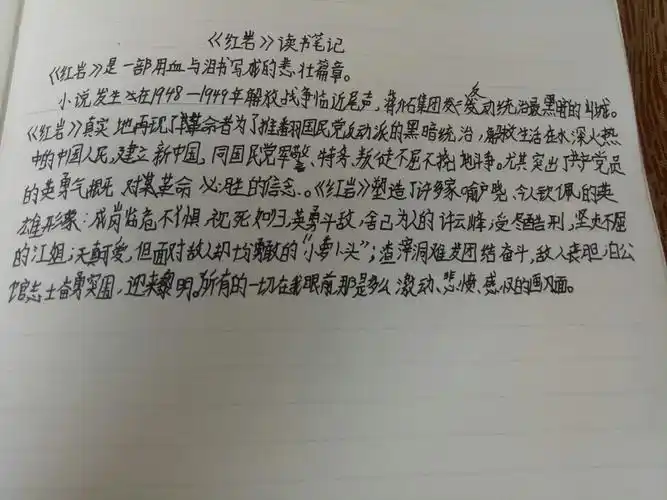 《红岩》读书笔记
《红岩》是一部用血与泪书写成的悲壮篇章。
小说发生在1948—1949年解放战争临近尾声,蒋介石集团反动统治最黑暗的山城。
《红岩》真实地再现了革命者为了推翻国民党反动派的黑暗统治,解放生活在水深火热
中的中国人民,建立新中国,同国民党军警、特务、叛徒不屈不挠地斗争。尤其突出了共产党员
的英勇气概 对其革命 必胜的信念。《红岩》塑造了许多家喻户晓、令人钦佩的英
雄形象:成岗临危不惧,视死如归,英勇斗敌,舍己为人的许云峰;受尽酷刑,坚贞不屈
的江姐;天真可爱,但面对敌人却十分勇敢的“小萝卜头”;渣滓洞难友团结奋斗,敌人丧胆;白公
馆志士奋勇突围,迎来黎明。所有的一切在我眼前那是多么激动、悲愤、感叹的画面。